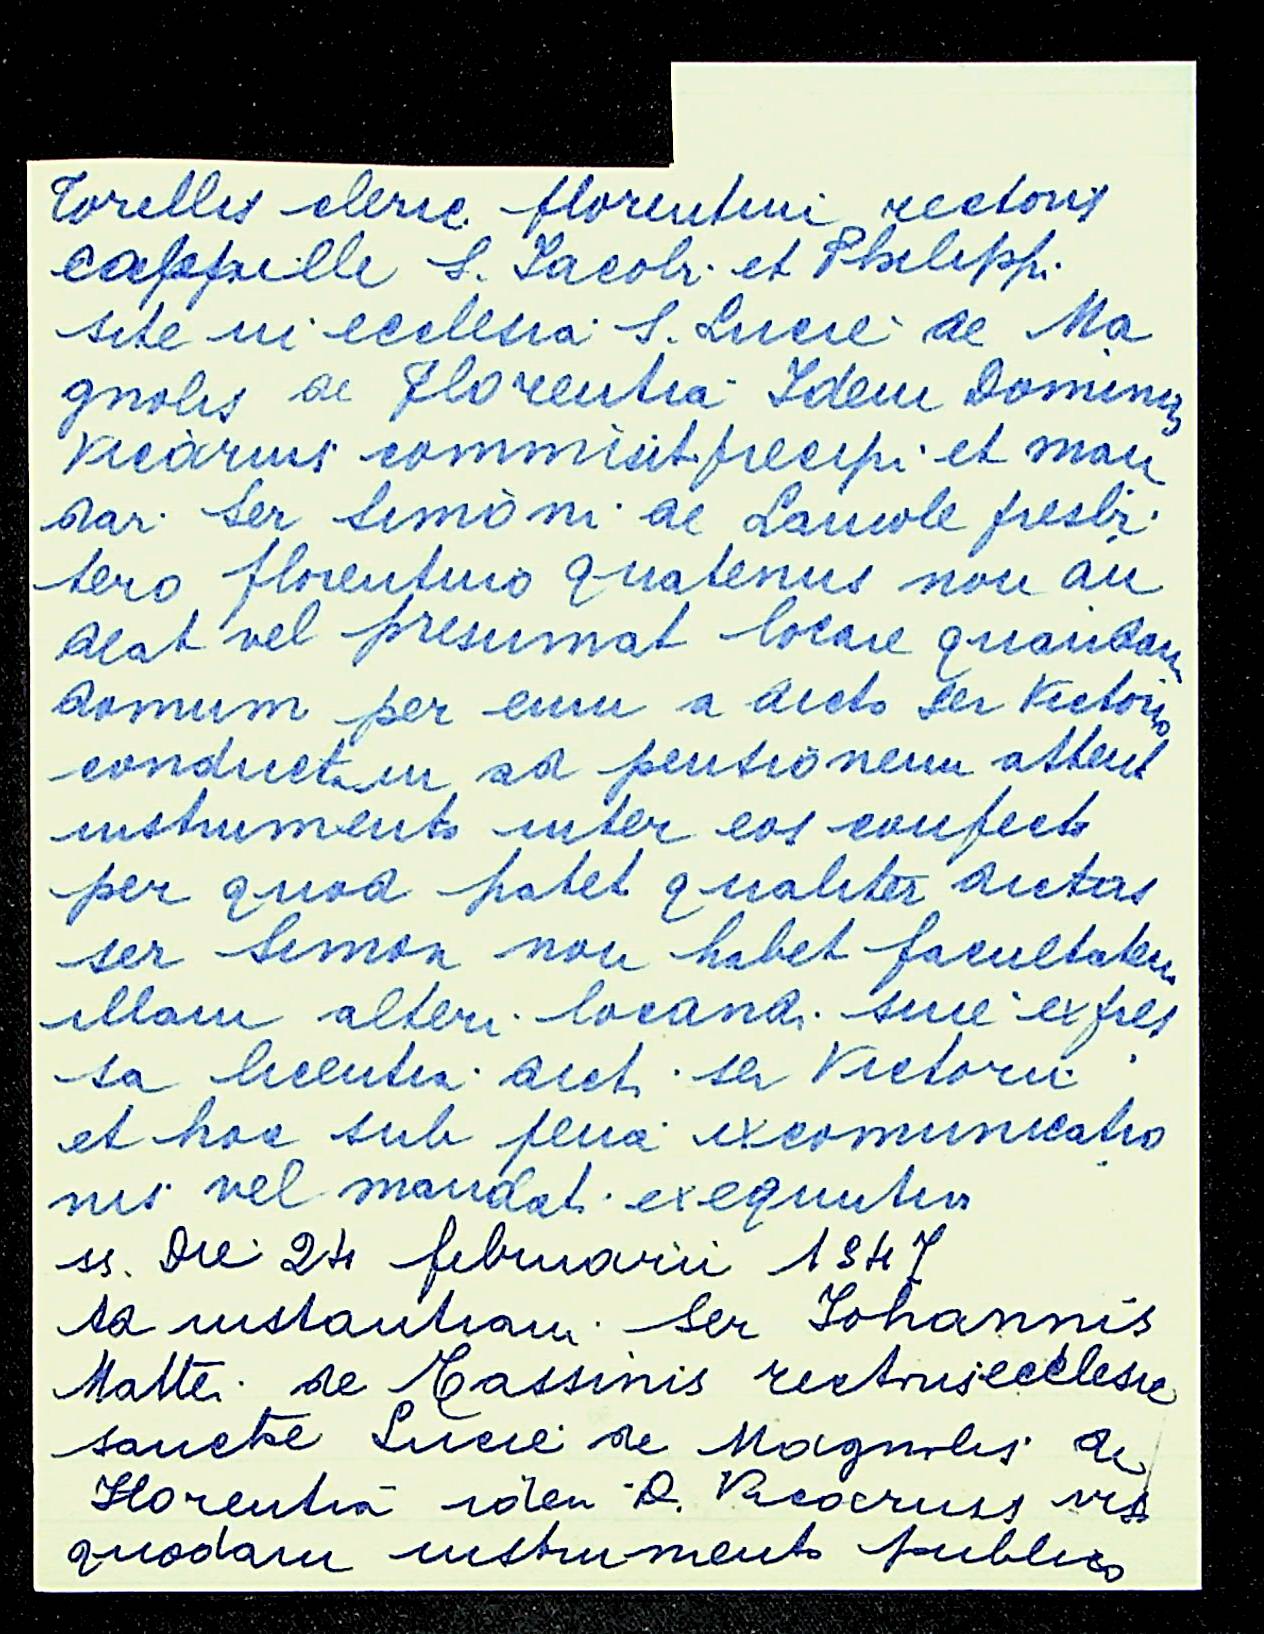 Torellis cleric. florentini rectoris
cappelle S. Jacobi et Philippi
site in ecclesia S. Lucie de Ma
gnolis de Florentia Idem Dominus
Vicarius commisit precipi et man
dari Ser Simoni de Lamole presbi
tero florentino quatenus non au
deat vel presumat locare quandam
domum per eum a dicto ser Victorio
conductam ad pensionem attent
instrumento inter eos confecto
per quod patet qualiter dictus
ser Simon non habet facultatem
illam alteri locandi sine expres
sa licentia dicti ser Victorii
et hoc sub pena excomunicatio
nis vel mandati exequutivi
ss. Die 24 februarii 1547
Ad instantiam Ser Johannis
Mattei de Cassinis rectoris ecclesie
sancte Lucie de Magnolis de
Florentia idem D. Vicarius viso
quodam instrumento publico